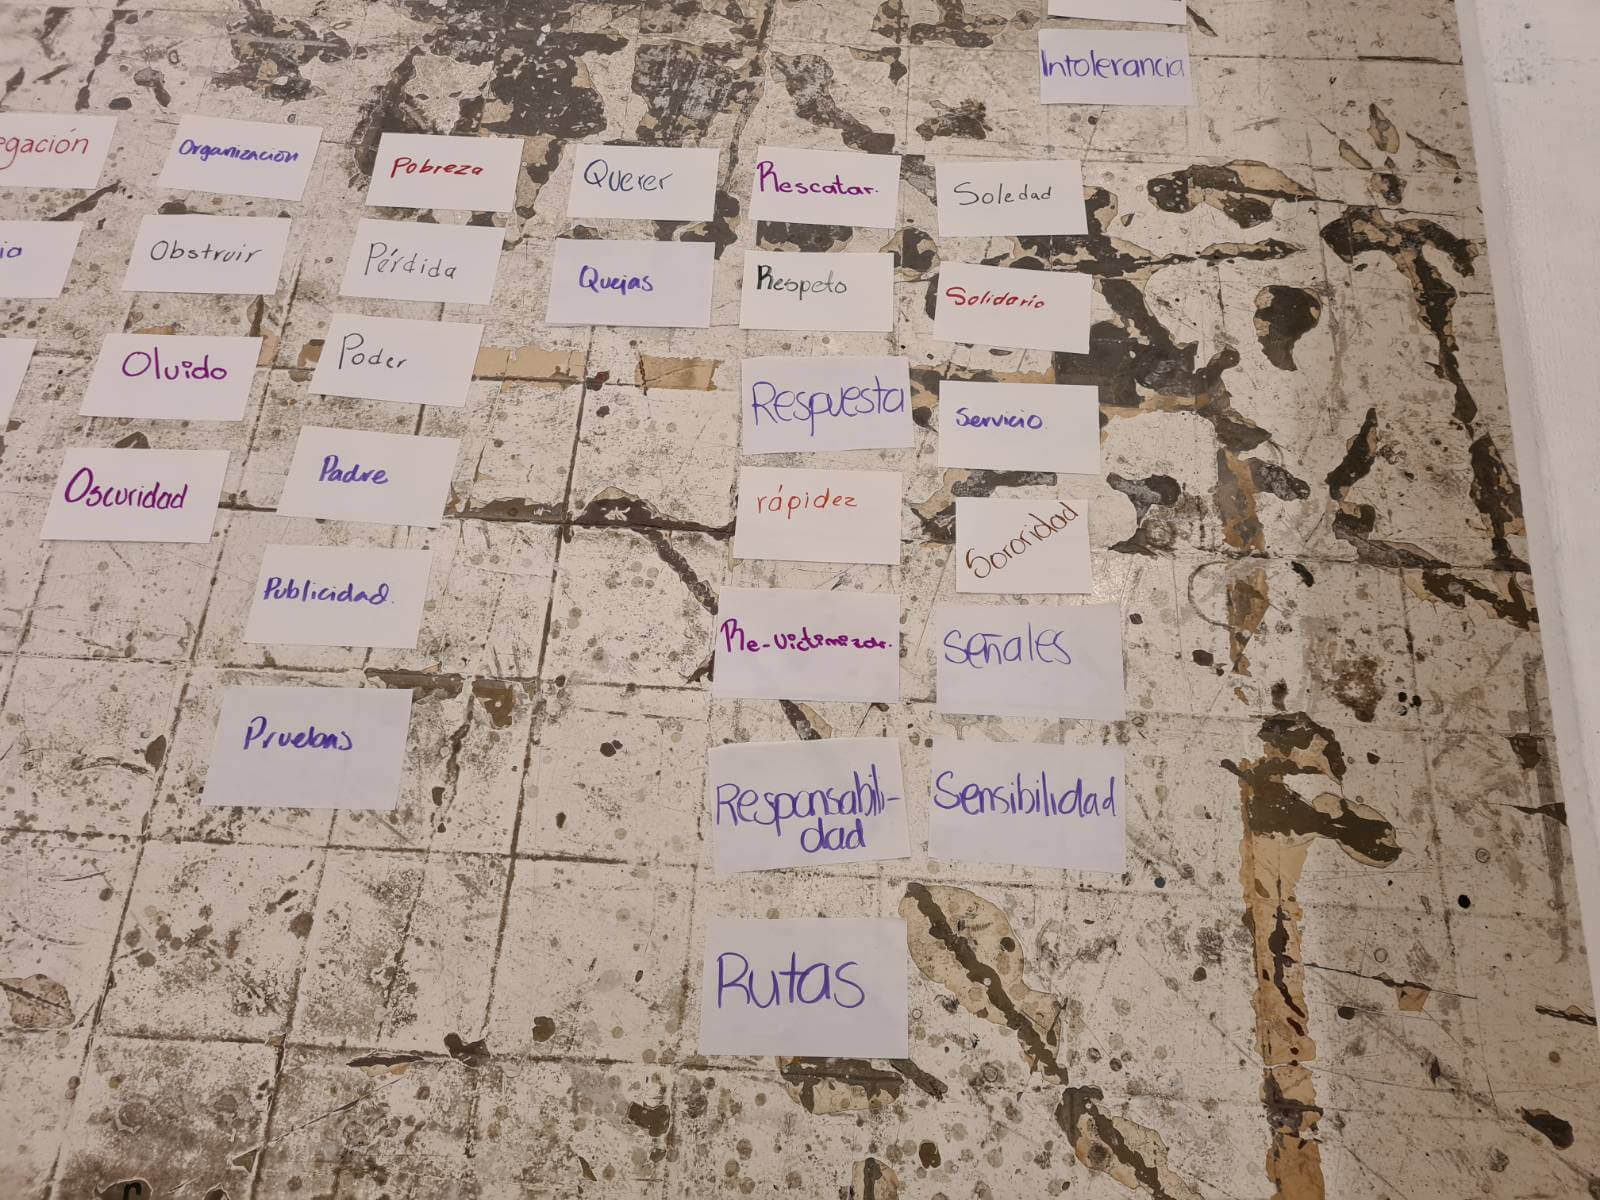 Intolerancia
egación
ia
Organización
Obstruir
Olvido
Oscuridad
Pobreza
Pérdida
Poder
Padre
Publicidad.
Pruebas
Querer
Quejas
Rescatar.
Respeto
Respuesta
rápidez
Re-victimizar.
Responsabili-
dad
Rutas
Soledad
Solidario
Servicio.
Sororidad
Señales
Sensibilidad